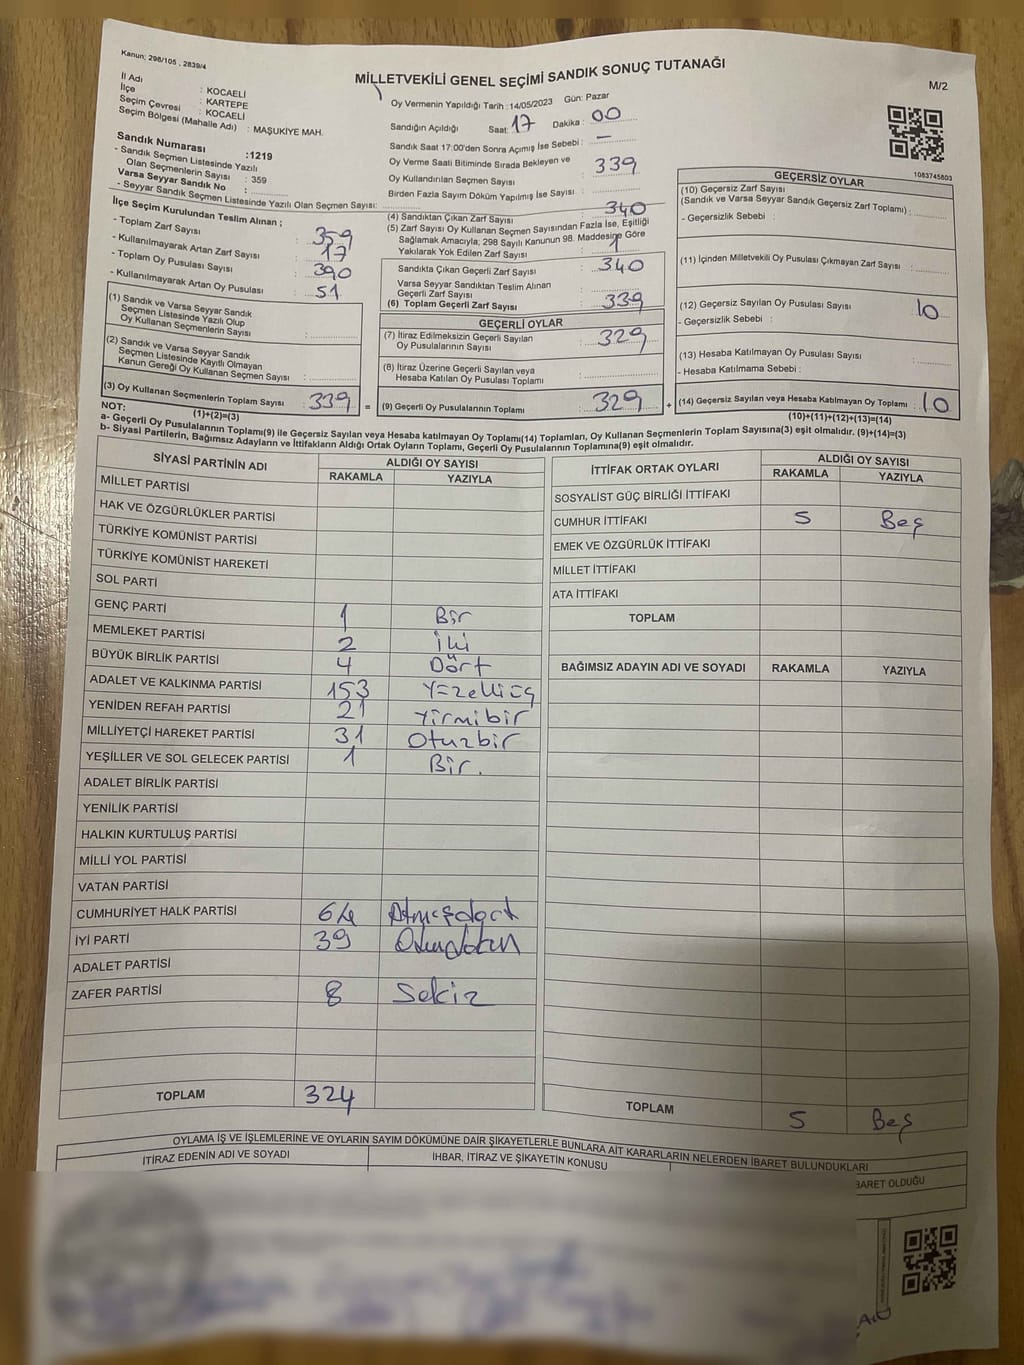 Kanun; 298/105 , 2839/4
MİLLETVEKİLİ GENEL SEÇİMİ SANDIK SONUÇ TUTANAĞI
M/2
İl Adı : KOCAELİ
İlçe : KARTEPE
Seçim Çevresi : KOCAELİ
Seçim Bölgesi (Mahalle Adı) : MAŞUKİYE MAH.
Sandık Numarası :1219
- Sandık Seçmen Listesinde Yazılı
Olan Seçmenlerin Sayısı : 359
Varsa Seyyar Sandık No :
- Seyyar Sandık Seçmen Listesinde Yazılı Olan Seçmen Sayısı:
Oy Vermenin Yapıldığı Tarih : 14/05/2023 Gün: Pazar
Sandığın Açıldığı Saat: 17 Dakika : 00
Sandık Saat 17:00'den Sonra Açımış İse Sebebi : —
Oy Verme Saati Bitiminde Sırada Bekleyen ve
Oy Kullandırılan Seçmen Sayısı : 339
Birden Fazla Sayım Döküm Yapılmış İse Sayısı :
1083745803
İlçe Seçim Kurulundan Teslim Alınan ;
- Toplam Zarf Sayısı : 359
- Kullanılmayarak Artan Zarf Sayısı : 17
- Toplam Oy Pusulası Sayısı : 390
- Kullanılmayarak Artan Oy Pusulası : 51
(1) Sandık ve Varsa Seyyar Sandık
Seçmen Listesinde Yazılı Olup
Oy Kullanan Seçmenlerin Sayısı :
(2) Sandık ve Varsa Seyyar Sandık
Seçmen Listesinde Kayıtlı Olmayan
Kanun Gereği Oy Kullanan Seçmen Sayısı :
(3) Oy Kullanan Seçmenlerin Toplam Sayısı : 339 =
(1)+(2)=(3)
(4) Sandıktan Çıkan Zarf Sayısı : 340
(5) Zarf Sayısı Oy Kullanan Seçmen Sayısından Fazla İse, Eşitliği
Sağlamak Amacıyla; 298 Sayılı Kanunun 98. Maddesine Göre
Yakılarak Yok Edilen Zarf Sayısı : 1
Sandıkta Çıkan Geçerli Zarf Sayısı : 340
Varsa Seyyar Sandıktan Teslim Alınan
Geçerli Zarf Sayısı :
(6) Toplam Geçerli Zarf Sayısı : 339
GEÇERLİ OYLAR
(7) İtiraz Edilmeksizin Geçerli Sayılan
Oy Pusulalarının Sayısı : 329
(8) İtiraz Üzerine Geçerli Sayılan veya
Hesaba Katılan Oy Pusulası Toplamı :
(9) Geçerli Oy Pusulalarının Toplamı : 329 +
GEÇERSİZ OYLAR
(10) Geçersiz Zarf Sayısı
(Sandık ve Varsa Seyyar Sandık Geçersiz Zarf Toplamı) :
- Geçersizlik Sebebi :
(11) İçinden Milletvekili Oy Pusulası Çıkmayan Zarf Sayısı :
(12) Geçersiz Sayılan Oy Pusulası Sayısı : 10
- Geçersizlik Sebebi :
(13) Hesaba Katılmayan Oy Pusulası Sayısı :
- Hesaba Katılmama Sebebi :
(14) Geçersiz Sayılan veya Hesaba Katılmayan Oy Toplamı : 10
(10)+(11)+(12)+(13)=(14)
NOT:
a- Geçerli Oy Pusulasının Toplamı(9) ile Geçersiz Sayılan veya Hesaba katılmayan Oy Toplamı(14) Toplamları, Oy Kullanan Seçmenlerin Toplam Sayısına(3) eşit olmalıdır. (9)+(14)=(3)
b- Siyasi Partilerin, Bağımsız Adayların ve İttifakların Aldığı Ortak Oyların Toplamı, Geçerli Oy Pusulalarının Toplamına(9) eşit olmalıdır.
SİYASİ PARTİNİN ADI
ALDIĞI OY SAYISI
RAKAMLA YAZIYLA
MİLLET PARTİSİ
HAK VE ÖZGÜRLÜKLER PARTİSİ
TÜRKİYE KOMÜNİST PARTİSİ
TÜRKİYE KOMÜNİST HAREKETİ
SOL PARTİ
GENÇ PARTİ 1 Bir
MEMLEKET PARTİSİ 2 İki
BÜYÜK BİRLİK PARTİSİ 4 Dört
ADALET VE KALKINMA PARTİSİ 153 Yüzelliüç
YENİDEN REFAH PARTİSİ 21 Yirmibir
MİLLİYETÇİ HAREKET PARTİSİ 31 Otuzbir
YEŞİLLER VE SOL GELECEK PARTİSİ 1 Bir.
ADALET BİRLİK PARTİSİ
YENİLİK PARTİSİ
HALKIN KURTULUŞ PARTİSİ
MİLLİ YOL PARTİSİ
VATAN PARTİSİ
CUMHURİYET HALK PARTİSİ 64 Atmışdört
İYİ PARTİ 39 Otuzdokuz
ADALET PARTİSİ
ZAFER PARTİSİ 8 Sekiz
TOPLAM 324
İTTİFAK ORTAK OYLARI
ALDIĞI OY SAYISI
RAKAMLA YAZIYLA
SOSYALİST GÜÇ BİRLİĞİ İTTİFAKI
CUMHUR İTTİFAKI 5 Beş
EMEK VE ÖZGÜRLÜK İTTİFAKI
MİLLET İTTİFAKI
ATA İTTİFAKI
TOPLAM
BAĞIMSIZ ADAYIN ADI VE SOYADI RAKAMLA YAZIYLA
TOPLAM 5 Beş
OYLAMA İŞ VE İŞLEMLERİNE VE OYLARIN SAYIM DÖKÜMÜNE DAİR ŞİKAYETLERLE BUNLARA AİT KARARLARIN NELERDEN İBARET BULUNDUKLARI
İTİRAZ EDENİN ADI VE SOYADI
İHBAR, İTİRAZ VE ŞİKAYETİN KONUSU
BARET OLDUĞU